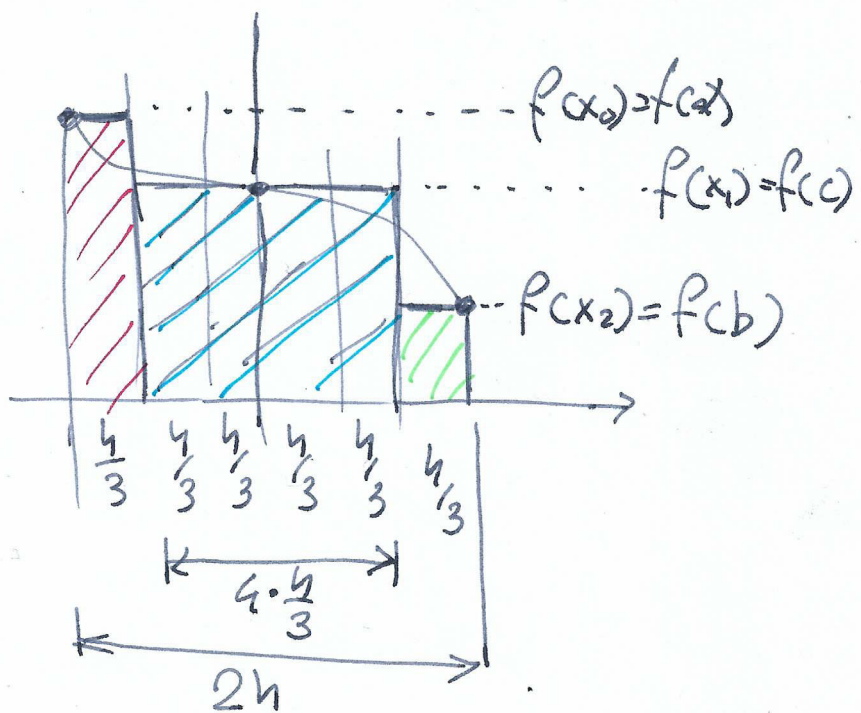 f(x₀)=f(a)
f(x₁)=f(c)
f(x₂)=f(b)
h/3 h/3 h/3 h/3 h/3 h/3
4·h/3
2h